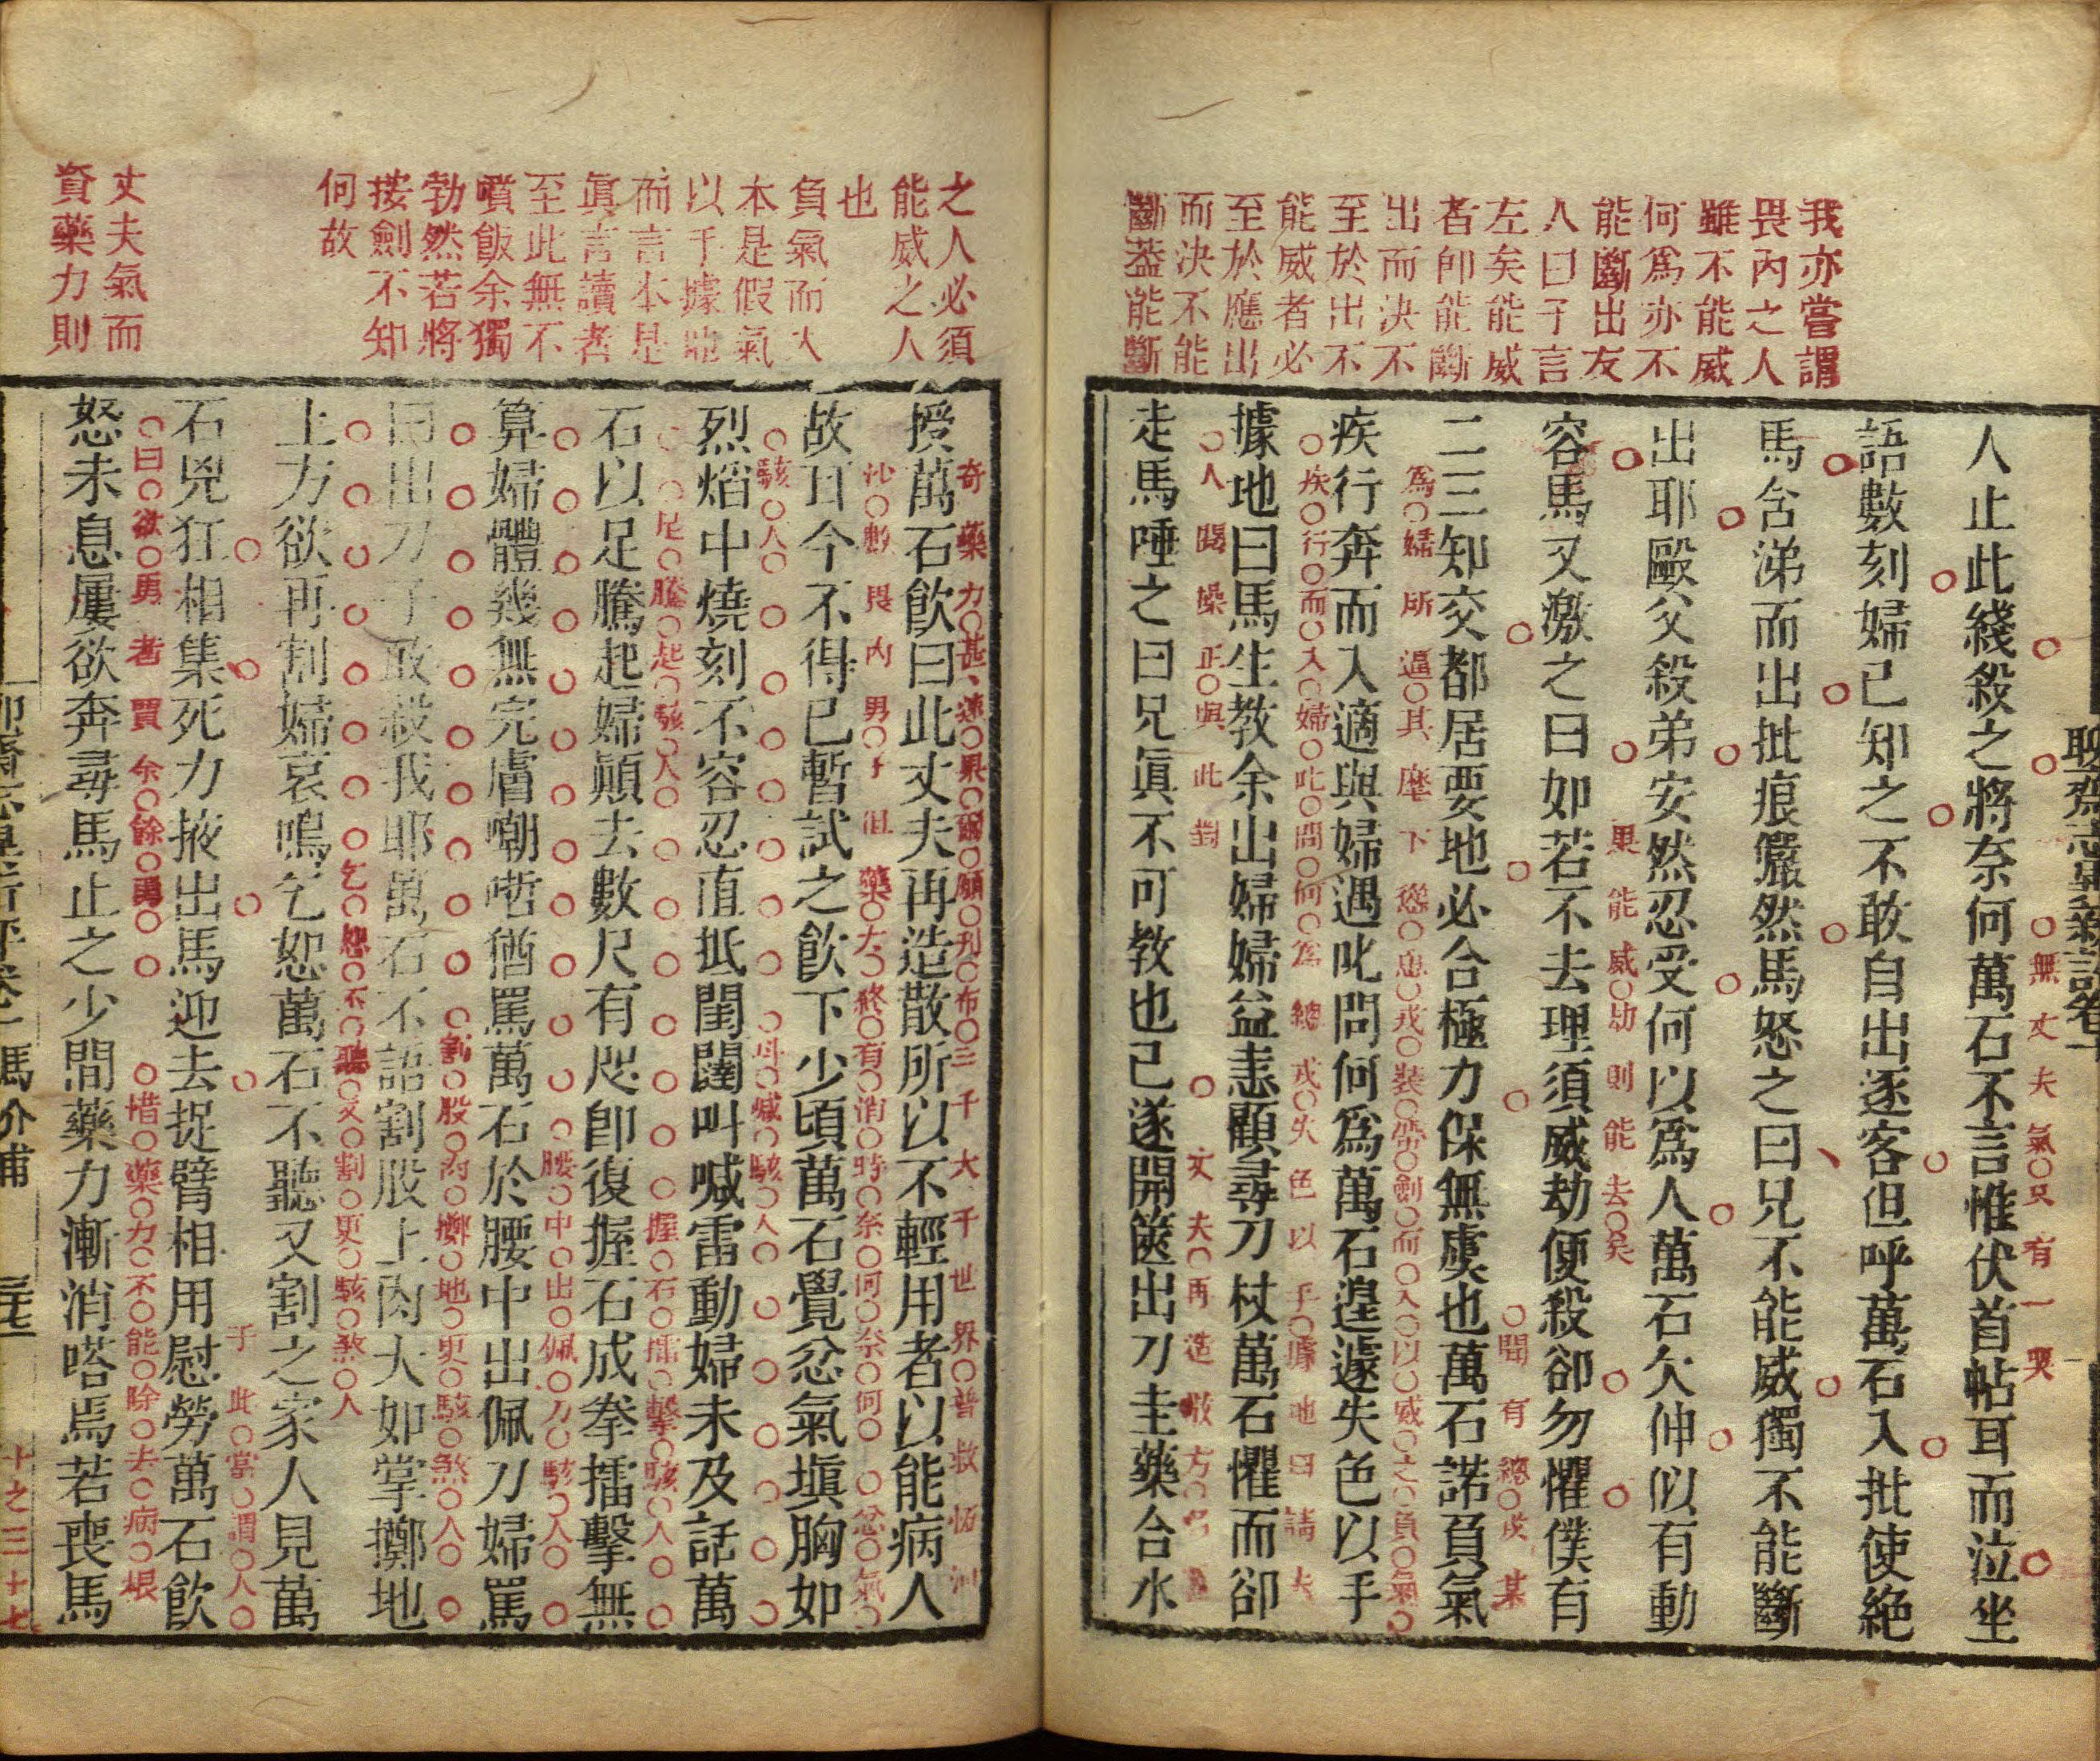 我亦嘗謂
畏內之人
雖不能威
何爲亦不
能斷出友
人曰子言
左矣能威
者卽能斷
出而決不
至於出不
能威者必
至於應出
而決不能
斷蓋能斷
人止此綫殺之將奈何萬石不言惟伏首帖耳而泣坐
無丈夫氣只有一哭
語數刻婦已知之不敢自出逐客但呼萬石入批使絕
馬含涕而出批痕儼然馬怒之曰兄不能威獨不能斷
出耶毆父殺弟安然忍受何以爲人萬石欠伸似有動
果能威劫則能去矣
容馬又激之曰如若不去理須威劫便殺卻勿懼僕有
聞有總戎某
二三知交都居要地必合極力保無虞也萬石諾負氣
爲婦所逼其麾下慫恿戎裝帶劍而入以威之負氣
疾行奔而入適與婦遇叱問何爲萬石遑遽失色以手
疾行而入婦叱問何爲總戎失色以手據地曰請夫
據地曰馬生教余出婦婦益恚顧尋刀杖萬石懼而卻
人閱操正與此對
丈夫再造散方
走馬唾之曰兄眞不可教也已遂開篋出刀圭藥合水
聊齋志異新評卷十
之人必須
能威之人
也
負氣而入
本是假氣
以手據地
而言本是
眞言讀者
至此無不
噴飯余獨
勃然若將
按劍不知
何故
丈夫氣而
資藥力則
奇藥力甚速果爾願刊布三千大千世界普救恆河
授萬石飮曰此丈夫再造散所以不輕用者以能病人
沙數畏內男子但藥力終有消時奈何奈何忿氣
故耳今不得已暫試之飮下少頃萬石覺忿氣塡胸如
駭人叫喊駭人
烈焰中燒刻不容忍直抵閨闥叫喊雷動婦未及話萬
足騰起駭人握石擂擊駭人
石以足騰起婦顚去數尺有咫卽復握石成拳擂擊無
腰中出佩刀駭人
算婦體幾無完膚嘲哳猶罵萬石於腰中出佩刀婦罵
割股肉擲地更駭煞人
曰出刀子敢殺我耶萬石不語割股上肉大如掌擲地
乞恕不聽又割更駭煞人
上方欲再割婦哀鳴乞恕萬石不聽又割之家人見萬
子此當謂人
石兇狂相集死力掖出馬迎去捉臂相用慰勞萬石飮
曰欲勇者賈余餘勇惜藥力不能除去病根
怒未息屢欲奔尋馬止之少間藥力漸消嗒焉若喪馬
馬介甫
三七
十之三十七